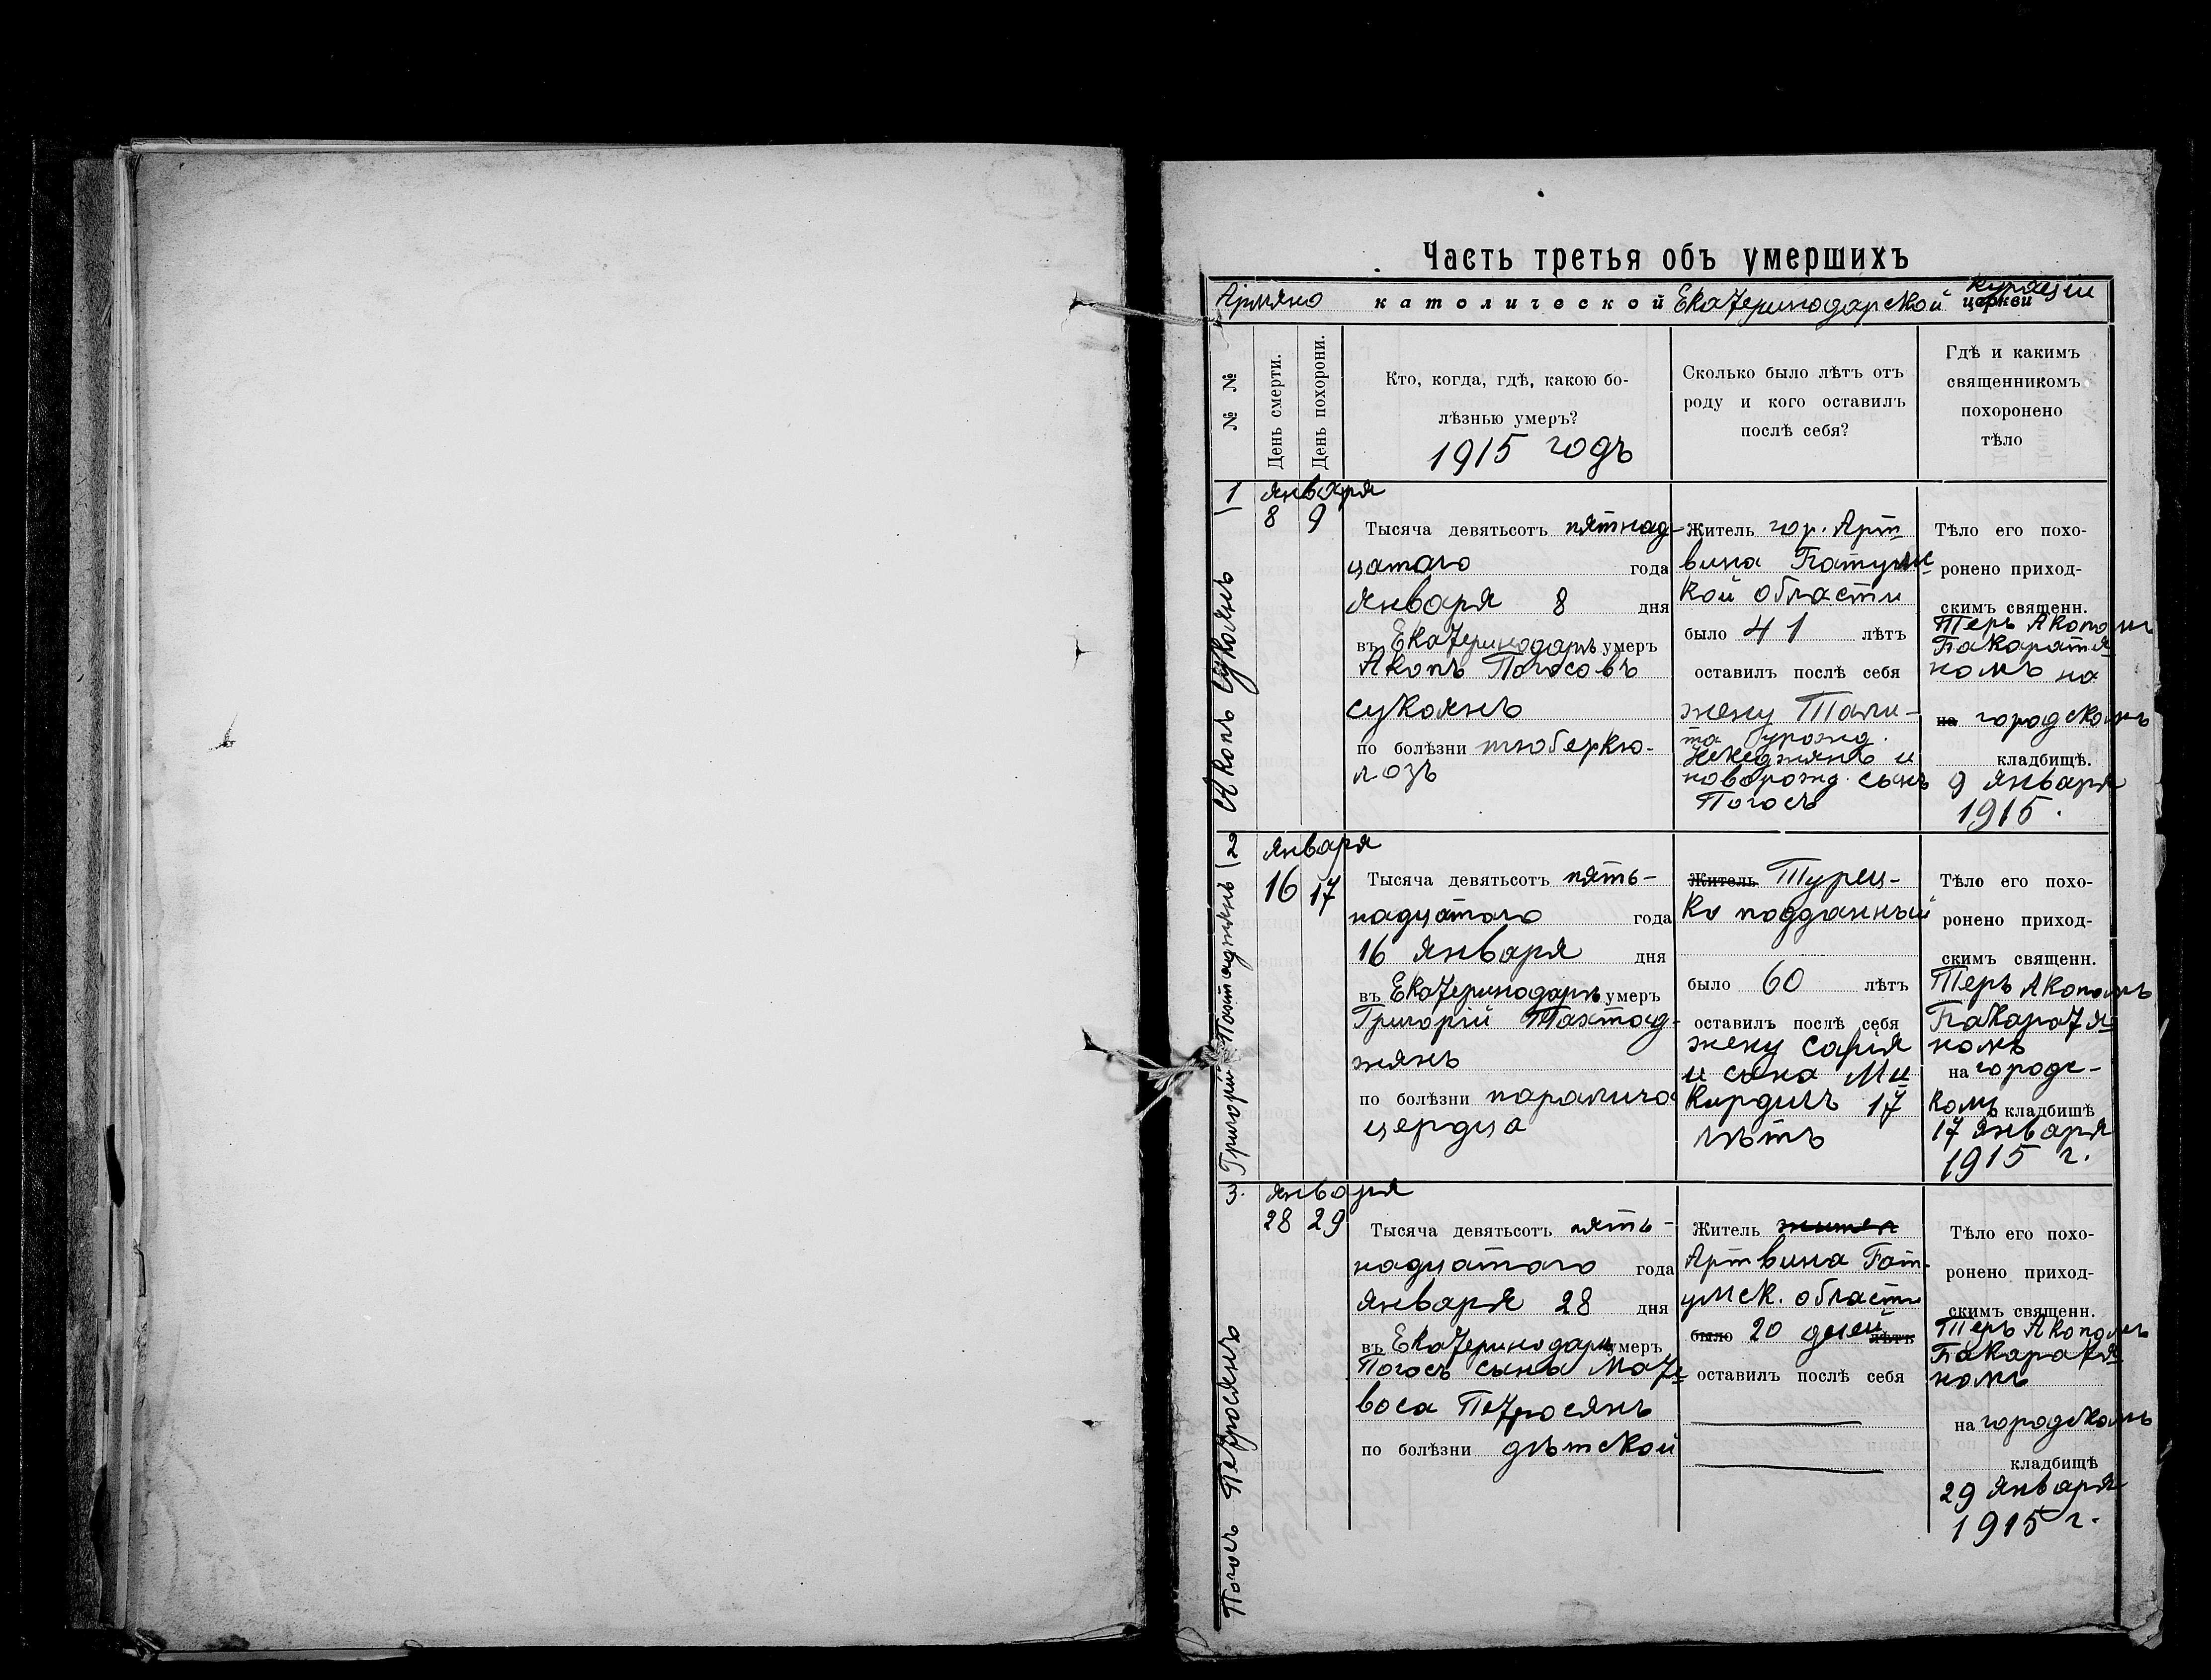 Часть третья объ умершихъ
Армяно католической Екатеринодарской церкви курации
№ №
День смерти.
День похорони.
Кто, когда, гдѣ, какою бо-
лѣзнью умеръ?
1915 годъ
Сколько было лѣтъ отъ
роду и кого оставилъ
послѣ себя?
Гдѣ и какимъ
священникомъ
похоронено
тѣло
1
Акопъ Сукоянъ
января
8 9
Тысяча девятьсотъ пятнад-
цатаго года
Января 8 дня
въ Екатеринодарѣ умеръ
Акопъ Погосовъ
Сукоянъ
по болѣзни тюберкю-
лозъ
Житель гор. Арт-
вина Батумс-
кой области
было 41 лѣтъ
оставилъ послѣ себя
жену
и
новорожд. сынъ
Погосъ
Тѣло его похо-
ронено приход-
скимъ священн.
Теръ Акопомъ
Бакаратя-
номъ на
на городскомъ
кладбищѣ.
9 Января
1915.
2
Григорій Пахтаджянъ
января
16 17
Тысяча девятьсотъ пять-
надцатаго года
16 Января дня
въ Екатеринодарѣ умеръ
Григорій Пахтад-
жянъ
по болѣзни паралича
цердца
Житель Турец-
ко подданный
было 60 лѣтъ
оставилъ послѣ себя
жену Сарія
и сына Ми
кирдичъ 17
лѣтъ
Тѣло его похо-
ронено приход-
скимъ священн.
Теръ Акопомъ
Бакаратя-
номъ
на городс-
комъ кладбищѣ
17 Января
1915 г.
3.
Погосъ Петросянъ
января
28 29
Тысяча девятьсотъ пять-
надцатаго года
Января 28 дня
въ Екатеринодарѣ умеръ
Погосъ сына Мате-
воса Петросянъ
по болѣзни дѣтской
Житель жител
Артвина Бат-
умск. области
было 20 дней лѣтъ
оставилъ послѣ себя
Тѣло его похо-
ронено приход-
скимъ священн.
Теръ Акопомъ
Бакаратя-
номъ
на городскомъ
кладбищѣ
29 Января
1915 г.